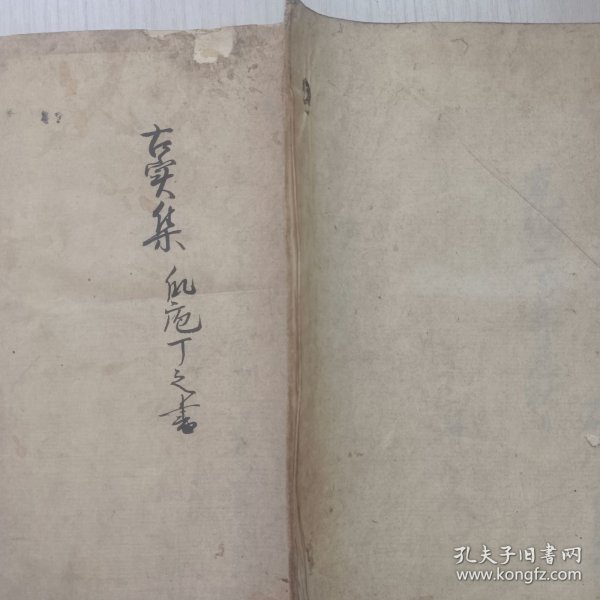 古实集 瓜庖丁之書
孔夫子旧書网
www.kongfz.com